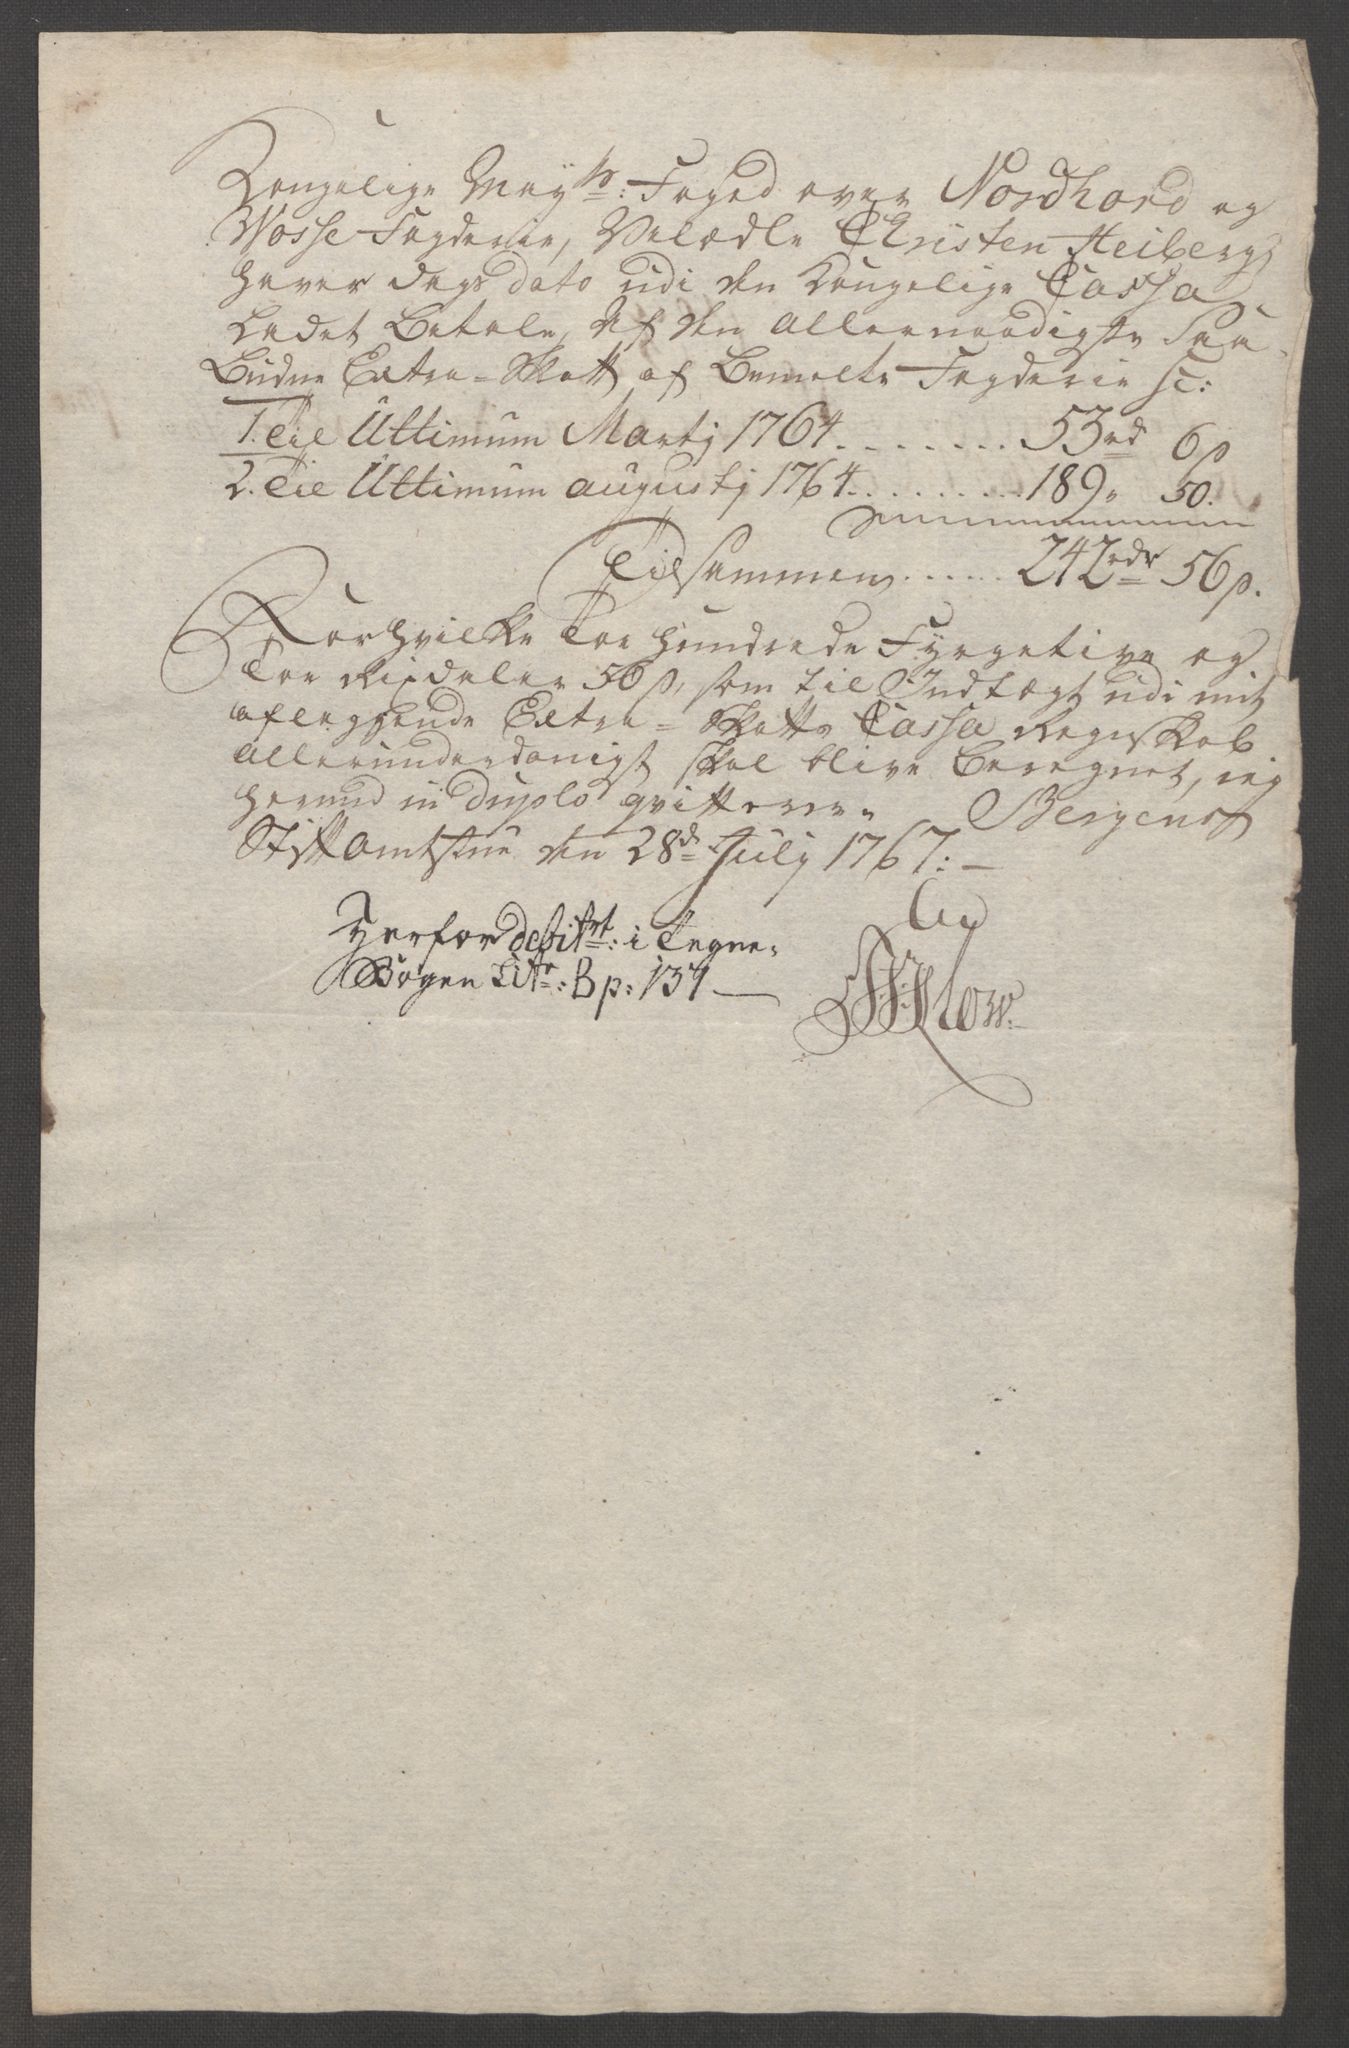 Kongelige Mayts: Foged over Nordhord og
Wosse Fogderie, Velædle Christen Heiberg
haver Dags dato udi den Kongelige Cassa
Ladet Betale, af den allernaadigste Paa-
Budne Extra-Skatt af Bemelte Fogderie sc:
1. Til Ultimum Martij 1764 . . . . . . . . 53 rd 6 s
2. Til Ultimum augustij 1764 . . . . . . . . . 189 „ 50.
Tilsammen . . . . . . 242 rdr 56 s.
For hvilke Toe hundrede Fyrgetive og
Toe Rixdaler 56 s, som til Indtægt udi mit
aflæggende Extra-Skatts Cassa Regnskab
allerunderdanigst skal blive Beregnet, ieg
herved in duplo qvitterer. Bergens
Stiftamtstue den 28de Julij 1767: —
Herfor debitrt: i Tegne-
Bogen Litr: B p: 134 —